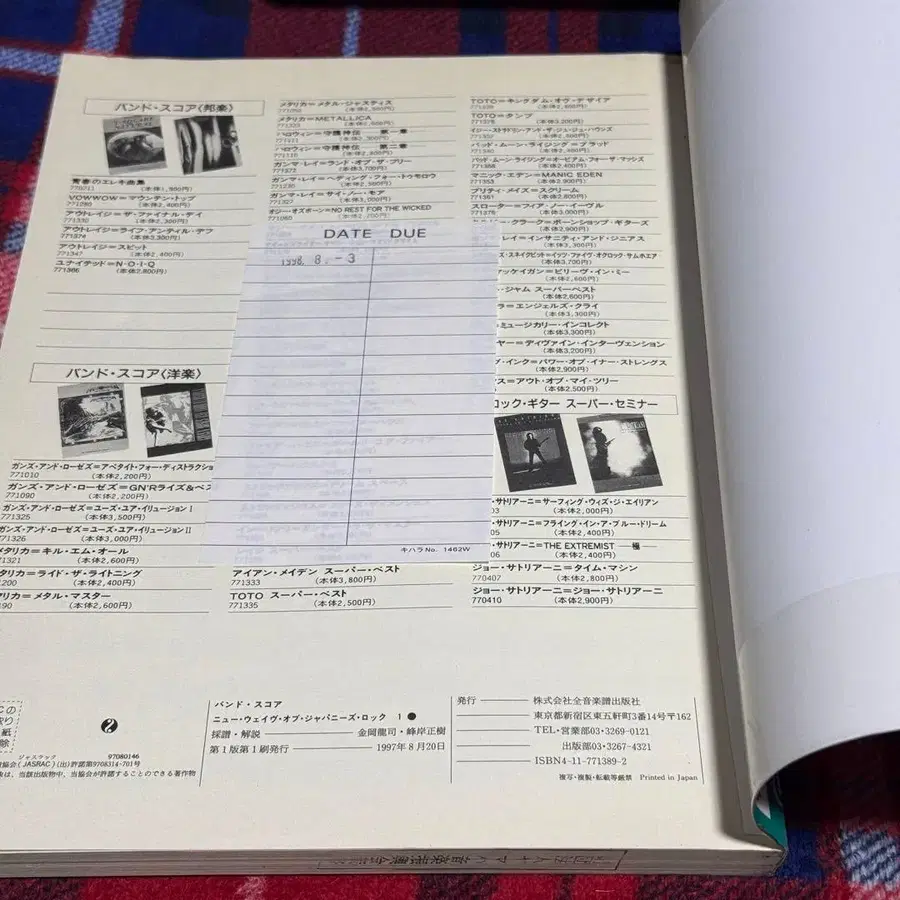 バンド・スコア〈邦楽〉
青春のエレキ曲集
(本体1,900円)
VOWWOW=マウンテン・トップ
(本体2,400円)
アウトレイジ=ザ・ファイナル・デイ
771330 (本体2,300円)
アウトレイジ=ライフ・アンティル・デフ
771374 (本体3,300円)
アウトレイジ=スピット
771347 (本体2,400円)
ユナイテッド=N・O・I・Q
771386 (本体2,800円)
バンド・スコア〈洋楽〉
ガンズ・アンド・ローゼズ=アペタイト・フォー・ディストラクショ
771010 (本体2,200円)
ガンズ・アンド・ローゼズ=GN'Rライズ&ベス
771090 (本体2,200円)
ガンズ・アンド・ローゼズ=ユーズ・ユア・イリュージョンI
771325 (本体3,500円)
ンズ・アンド・ローゼズ=ユーズ・ユア・イリュージョンII
771326 (本体3,000円)
メタリカ=キル・エム・オール
1321 (本体2,600円)
タリカ=ライド・ザ・ライトニング
1200 (本体2,400円)
リカ=メタル・マスター
190 (本体2,600円)
メタリカ=メタル・ジャスティス
メタリカ=METALLICA
ハロウィン=守護神伝 第一章
ハロウィン=守護神伝 第二章
ガンマ・レイ=ランド・オブ・ザ・フリー
ガンマ・レイ=ヘディング・フォー・トゥモロウ
ガンマ・レイ=サイ・ノー・モア
オジー・オズボーン=NO REST FOR THE WICKED
DATE DUE
1998. 8. -3
キハラNo. 1462W
アイアン・メイデン スーパー・ベスト
771333 (本体3,800円)
TOTO スーパー・ベスト
771335 (本体2,500円)
TOTO=キングダム・オヴ・デザイア
TOTO=タンブ
イジー・ストラドリン・アンド・ザ・ジュ・ジュ・ハウンズ
バッド・ムーン・ライジング=ブラッド
バッド・ムーン・ライジング=オーピアム・フォー・ザ・マッシズ
マニック・エデン=MANIC EDEN
771353 (本体2,900円)
プリティ・メイズ=スクリーム
771361 (本体2,800円)
スローター=フィア・ノー・イーヴル
(本体3,000円)
クラーク=ボーンショップ・ギターズ
(本体2,900円)
レイ=インサニティ・アンド・ジニアス
(本体3,300円)
ス・スネイクピット=イッツ・ファイヴ・オクロック・サムホエア
(本体3,700円)
ァッケイガン=ビリーヴ・イン・ミー
(本体2,600円)
・ジャム スーパーベスト
(本体2,600円)
ラ=エンジェルズ・クライ
(本体3,300円)
ミュージカリー・インコレクト
(本体3,300円)
ヤー=ディヴァイン・インターヴェンション
(本体3,200円)
グ・インク=パワー・オブ・イナー・ストレングス
(本体2,900円)
ス=アウト・オブ・マイ・ツリー
(本体2,500円)
ロック・ギター スーパー・セミナー
・サトリアーニ=サーフィング・ウィズ・ジ・エイリアン
03 (本体2,000円)
・サトリアーニ=フライング・イン・ア・ブルー・ドリーム
05 (本体2,400円)
・サトリアーニ=THE EXTREMIST —極—
06 (本体2,400円)
ジョー・サトリアーニ=タイム・マシン
770407 (本体2,800円)
ジョー・サトリアーニ=ジョー・サトリアーニ
770410 (本体2,900円)
Cの
取り
紙
除
②
ジャスラック 97080146
協会(JASRAC)(出)許諾第9708314-701号
象は、当該出版物中、当協会が許諾することのできる著作物
バンド・スコア
ニュー・ウェイヴ・オブ・ジャパニーズ・ロック 1●
採譜・解説 金岡龍司・峰岸正樹
第1版第1刷発行 1997年8月20日
発行 株式会社全音楽譜出版社
東京都新宿区東五軒町3番14号〒162
TEL・営業部03・3269-0121
出版部03・3267-4321
ISBN4-11-771389-2
複写・複製・転載等厳禁 Printed in Japan